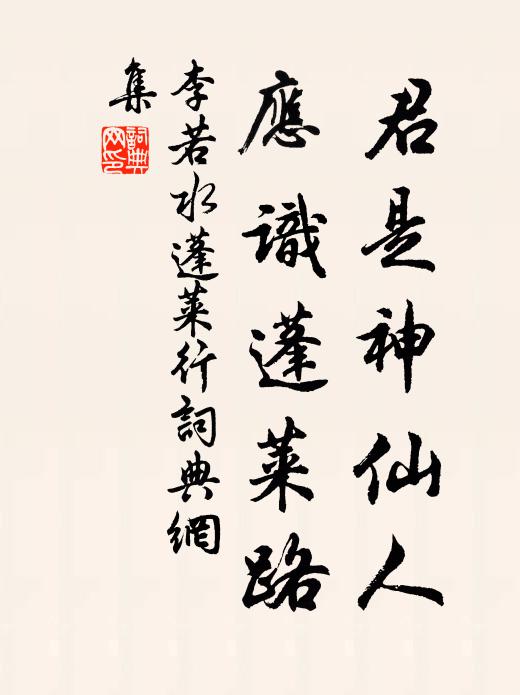 君是神仙人
應識蓬萊路
李若水蓬萊行詞典網
集
詞典網印